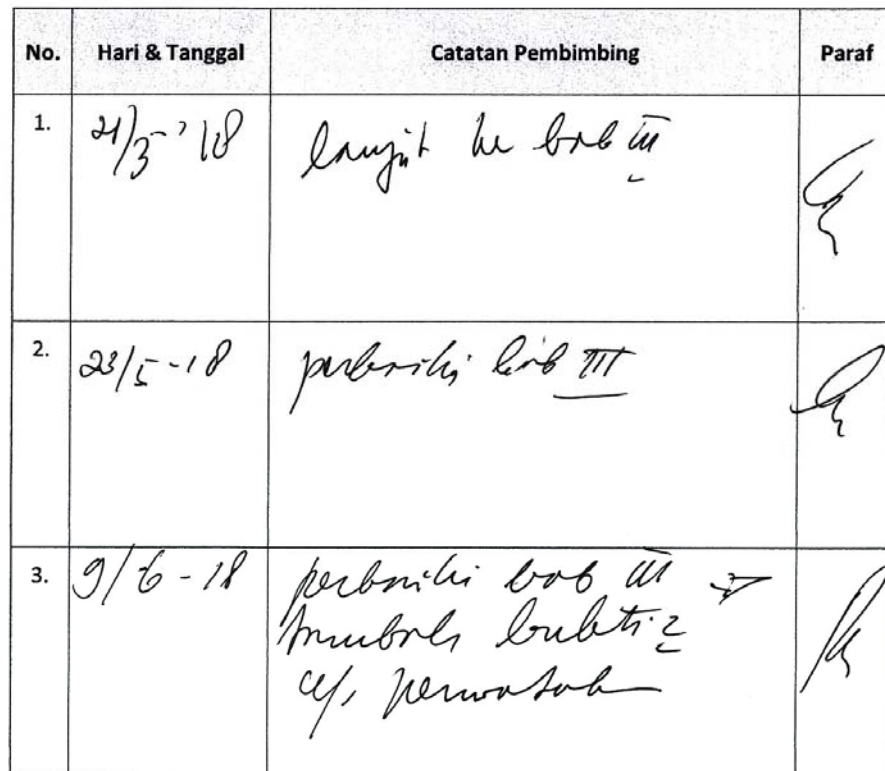 No. Hari & Tanggal Catatan Pembimbing Paraf
1. 21/3-'18 lanjut ke bab III
2. 23/5-18 perbaiki bab III
3. 9/6-18 perbaiki bab III →
bukti2